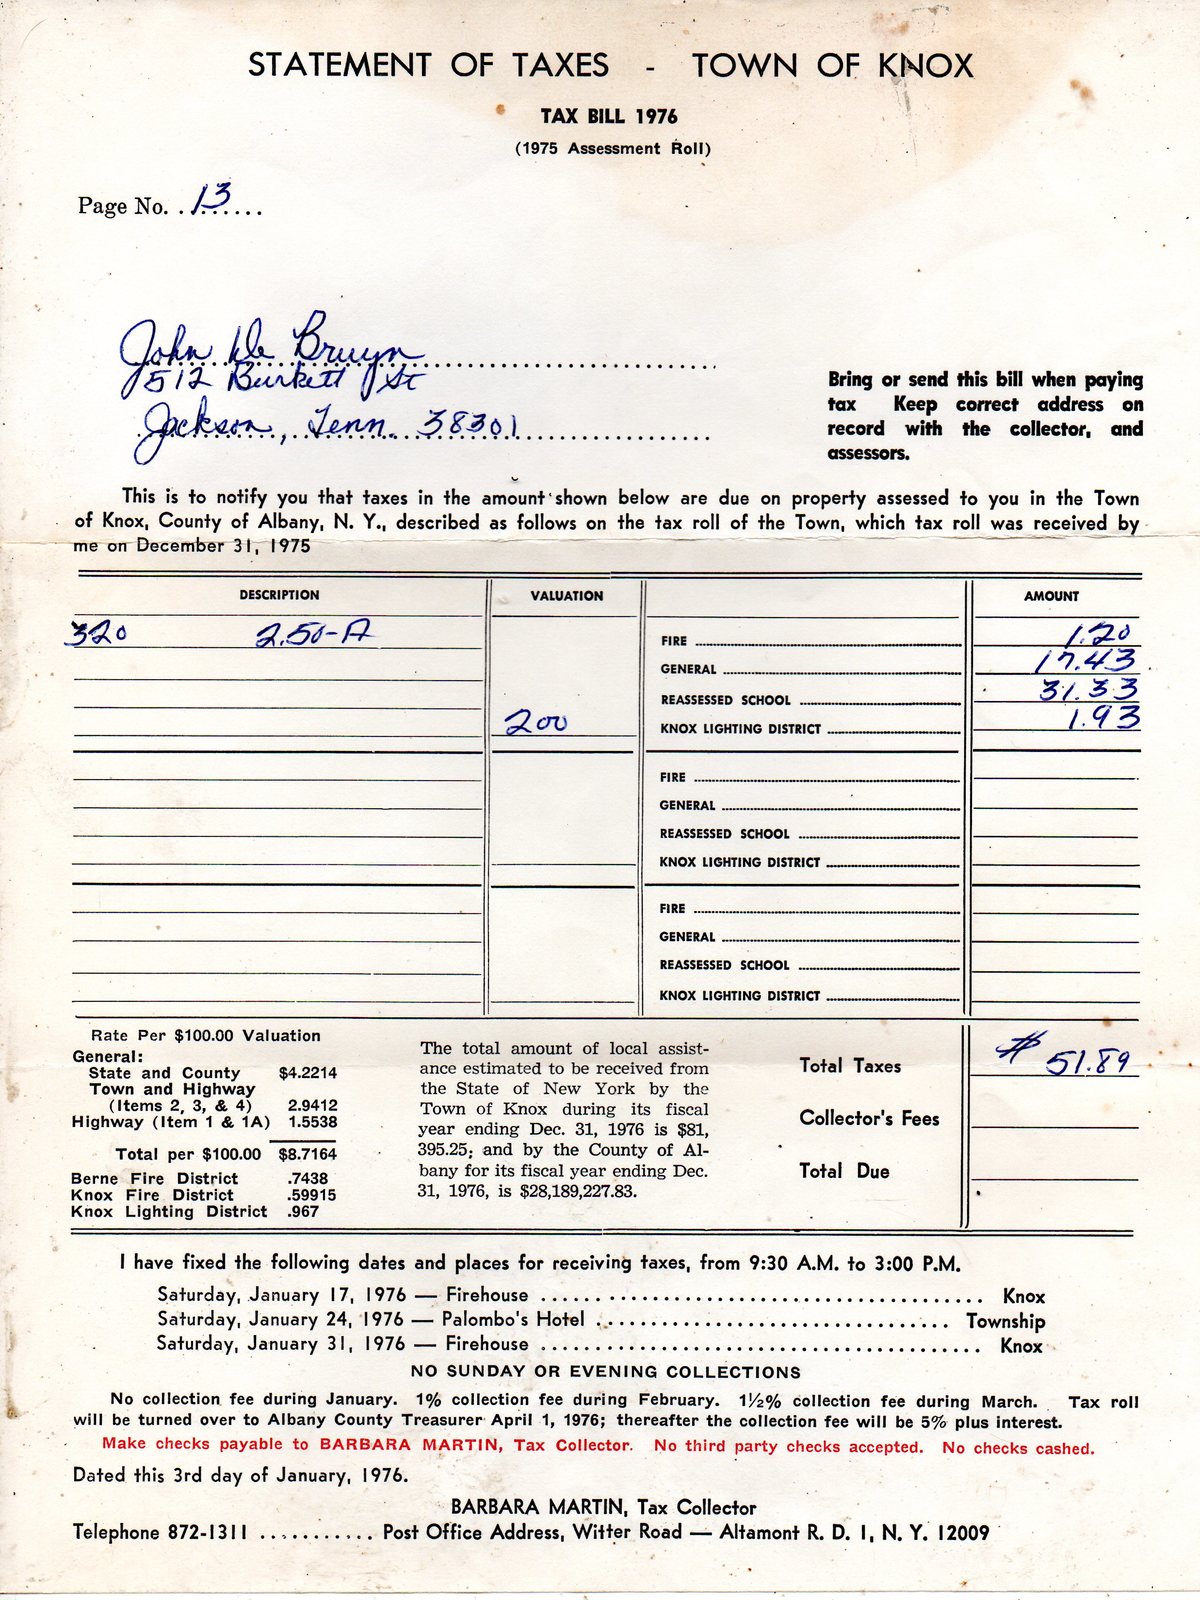 STATEMENT OF TAXES - TOWN OF KNOX
TAX BILL 1976
(1975 Assessment Roll)
Page No. ..13......
John De Bruyn
512 Burkett St
Jackson, Tenn. 38301
Bring or send this bill when paying
tax Keep correct address on
record with the collector, and
assessors.
This is to notify you that taxes in the amount shown below are due on property assessed to you in the Town
of Knox, County of Albany, N. Y., described as follows on the tax roll of the Town, which tax roll was received by
me on December 31, 1975
DESCRIPTION VALUATION AMOUNT
320 2.50-A FIRE 1.20
GENERAL 17.43
REASSESSED SCHOOL 31.33
200 KNOX LIGHTING DISTRICT 1.93
FIRE
GENERAL
REASSESSED SCHOOL
KNOX LIGHTING DISTRICT
FIRE
GENERAL
REASSESSED SCHOOL
KNOX LIGHTING DISTRICT
Rate Per $100.00 Valuation
General:
State and County $4.2214
Town and Highway
(Items 2, 3, & 4) 2.9412
Highway (Item 1 & 1A) 1.5538
Total per $100.00 $8.7164
Berne Fire District .7438
Knox Fire District .59915
Knox Lighting District .967
The total amount of local assist-
ance estimated to be received from
the State of New York by the
Town of Knox during its fiscal
year ending Dec. 31, 1976 is $81,
395.25; and by the County of Al-
bany for its fiscal year ending Dec.
31, 1976, is $28,189,227.83.
Total Taxes $ 51.89
Collector's Fees
Total Due
I have fixed the following dates and places for receiving taxes, from 9:30 A.M. to 3:00 P.M.
Saturday, January 17, 1976 — Firehouse ........................................ Knox
Saturday, January 24, 1976 — Palombo's Hotel ................................ Township
Saturday, January 31, 1976 — Firehouse ........................................ Knox
NO SUNDAY OR EVENING COLLECTIONS
No collection fee during January. 1% collection fee during February. 1½% collection fee during March. Tax roll
will be turned over to Albany County Treasurer April 1, 1976; thereafter the collection fee will be 5% plus interest.
Make checks payable to BARBARA MARTIN, Tax Collector. No third party checks accepted. No checks cashed.
Dated this 3rd day of January, 1976.
BARBARA MARTIN, Tax Collector
Telephone 872-1311 ........... Post Office Address, Witter Road — Altamont R. D. 1, N. Y. 12009